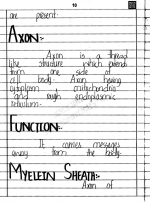 18
are present.
AXON:-
Axon is a thread
like structure which extends
from one side of
cell body. Axon having
cytoplasm, mitochondria
and rough endoplasmic
reticulum.
FUNCTION:-
It carries messages
away from the body.
MYELEIN SHEATH:-
Axon of